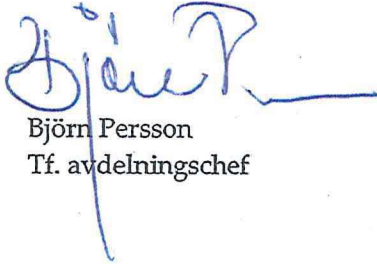 Björn P
Björn Persson
Tf. avdelningschef